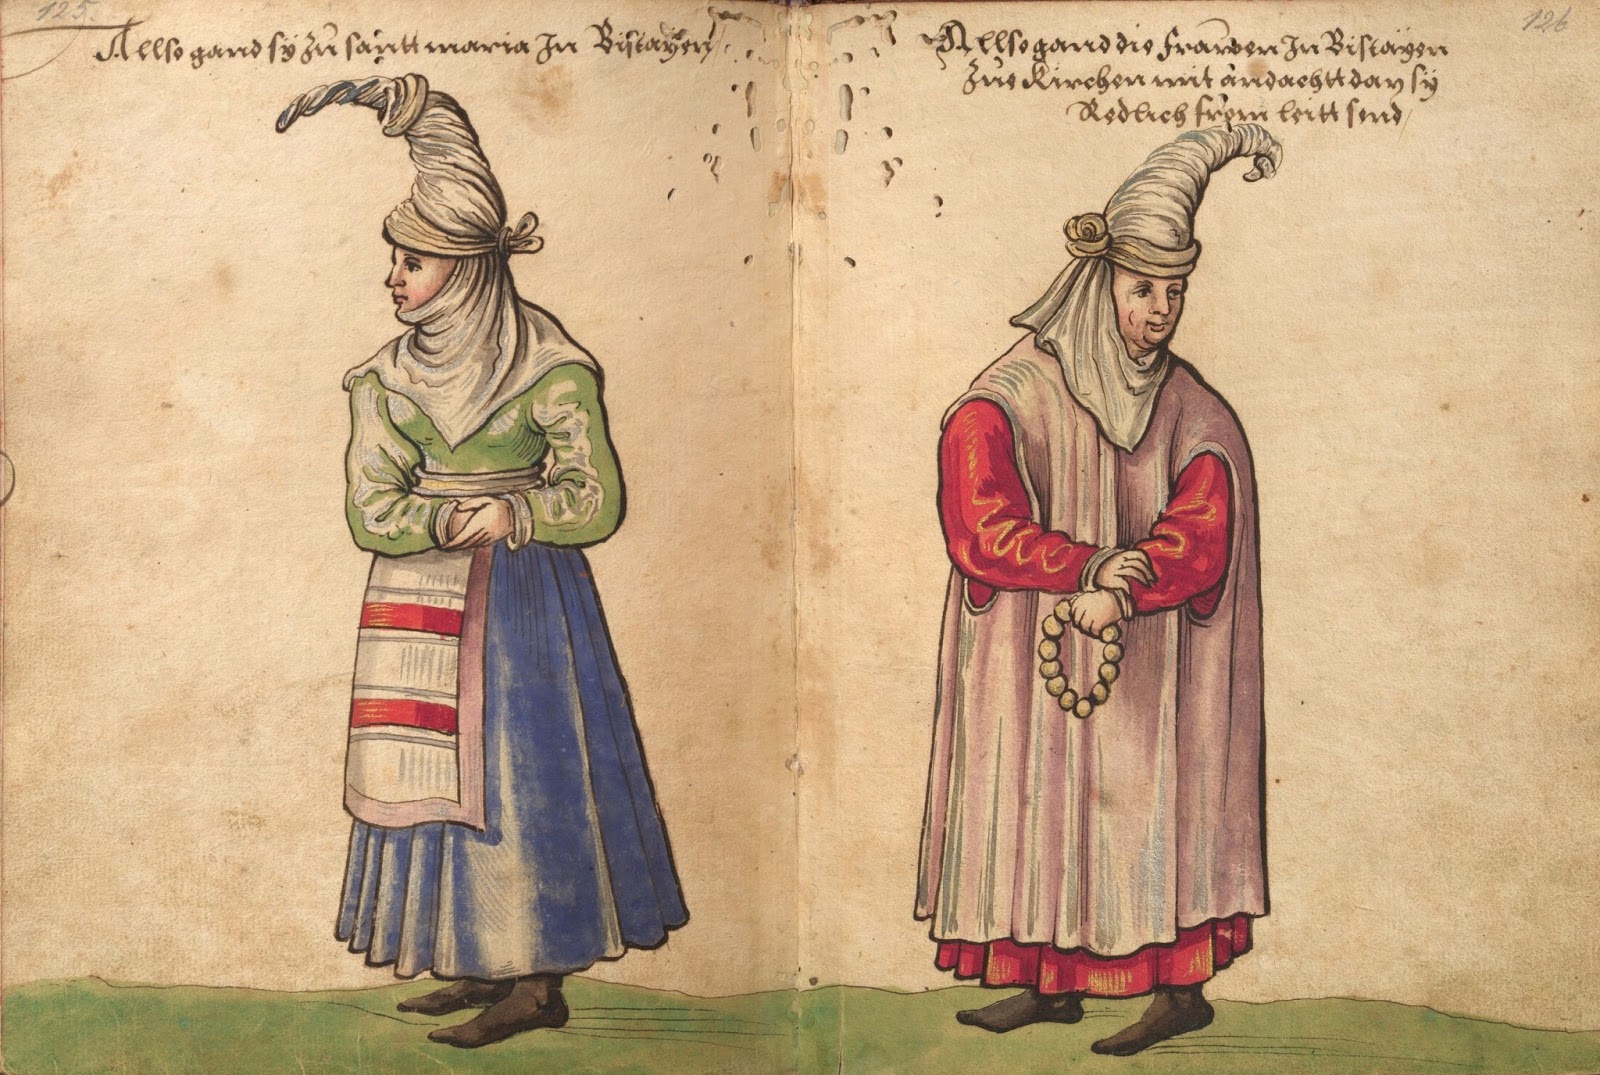 125.
Allso gand sÿ Zu santt maria In Biscayen
126
Allso gand die frawen In Biscayen
Zue Kirchen mit andachtt day sÿ
Redlich from leitt send